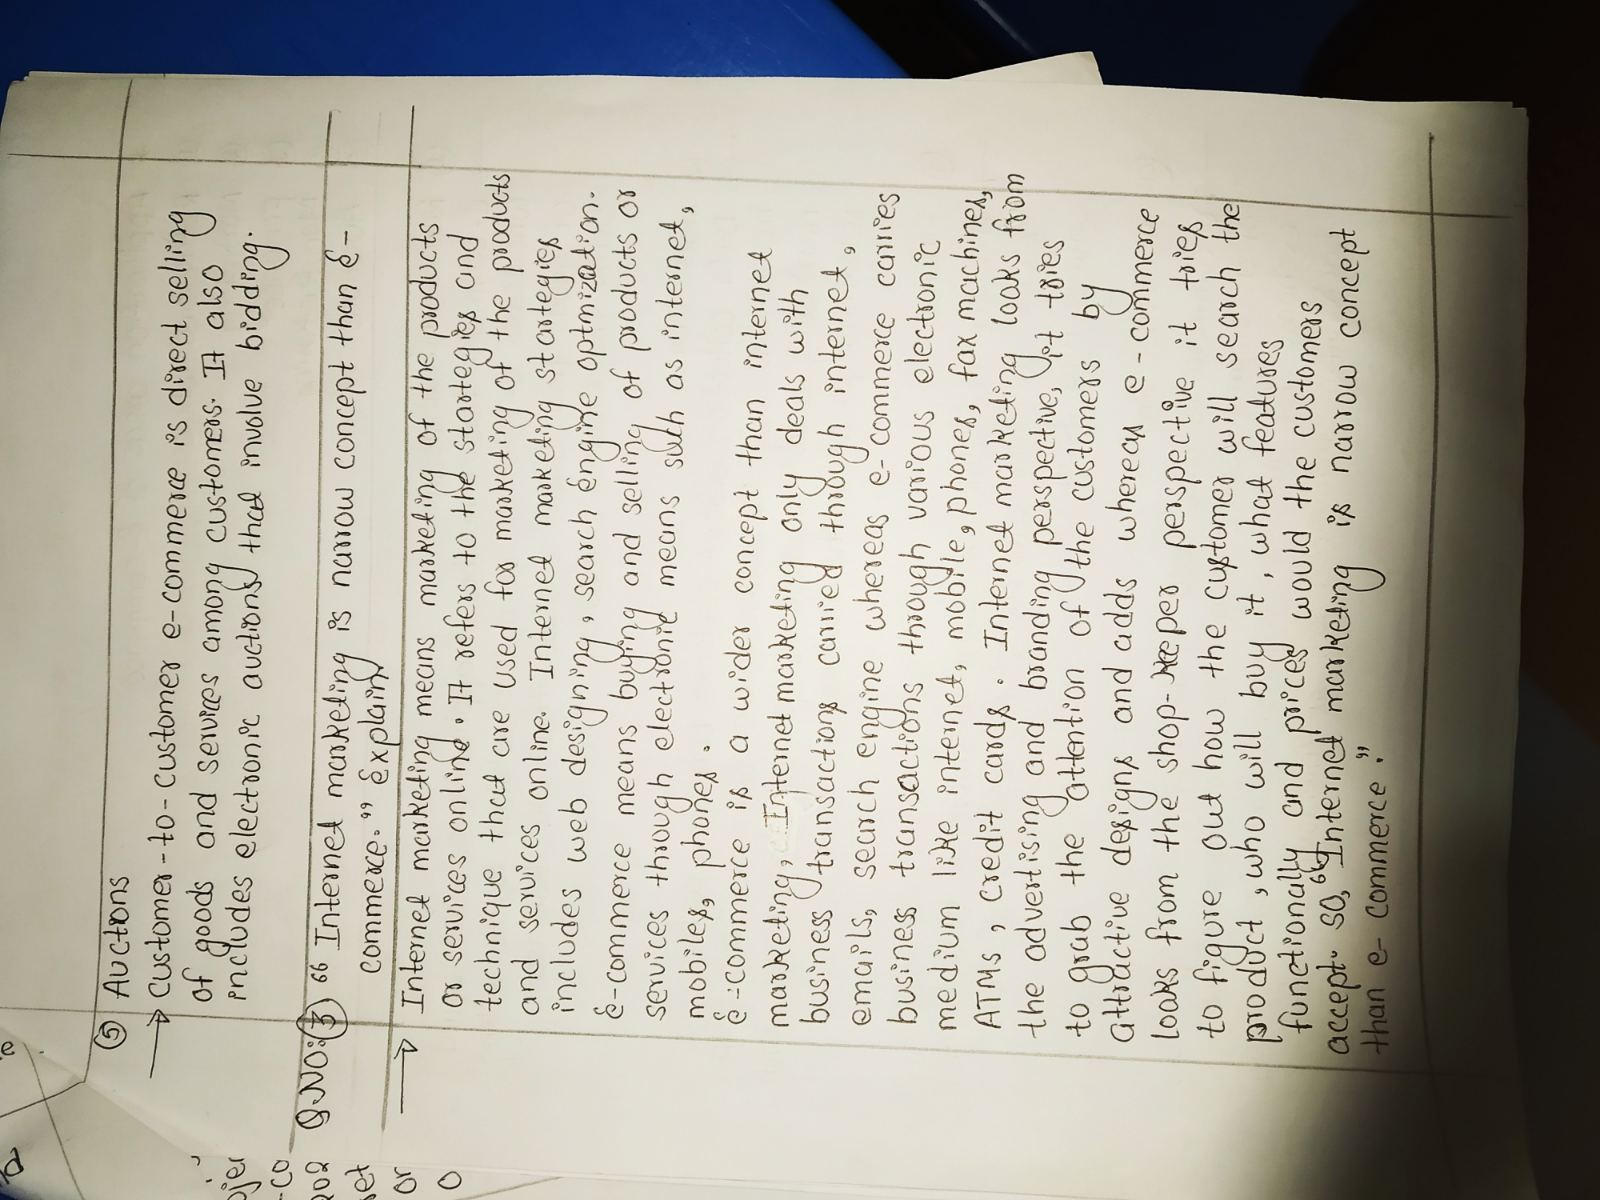 ⑤ Auctions
→ Customer-to-customer e-commerce is direct selling
of goods and services among customers. It also
includes electronic auctions that involve bidding.
Q.NO:③ “ Internet marketing is narrow concept than E-
commerce.” Explain
→ Internet marketing means marketing of the products
or services online. It refers to the startegies and
technique that are used for marketing of the products
and services online. Internet marketing startegies
includes web designing, search engine optmization.
E-commerce means buying and selling of products or
services through electronic means such as internet,
mobiles, phones.
E-commerce is a wider concept than internet
marketing, Internet marketing only deals with
business transactions carried through internet,
emails, search engine whereas e-commerce carries
business transactions through various electronic
medium like internet, mobile, phones, fax machines,
ATMs, credit cards. Internet marketing looks from
the advertising and branding perspective, it tries
to grab the attention of the customers by
attractive designs and adds whereas e-commerce
looks from the shop-keeper perspective it tries
to figure out how the customer will search the
product, who will buy it, what features
functionally and prices would the customers
accept. So, “Internet marketing is narrow concept
than e-commerce.”
ojer
-co
202
set
or
o